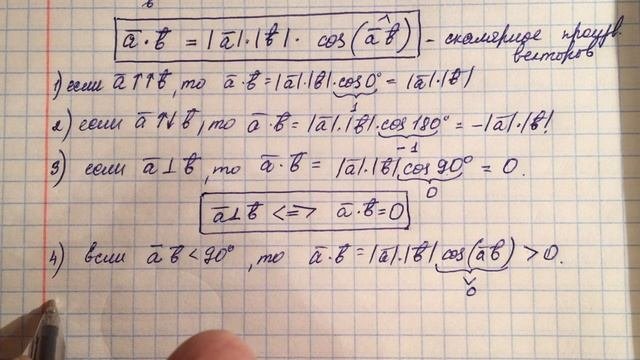 в
a̅ · b̅ = |a̅| · |b̅| · cos(a̅^b̅) – скалярное произв. векторов
1) если a̅ ↑↑ b̅, то a̅ · b̅ = |a̅| · |b̅| · cos 0° = |a̅| · |b̅|
1
2) если a̅ ↑↓ b̅, то a̅ · b̅ = |a̅| · |b̅| · cos 180° = -|a̅| · |b̅|
-1
3) если a̅ ⊥ b̅, то a̅ · b̅ = |a̅| · |b̅| cos 90° = 0.
0
a̅ ⊥ b̅ <=> a̅ · b̅ = 0
4) если a̅ b̅ < 90°, то a̅ · b̅ = |a̅| · |b̅| cos(a̅ b̅) > 0.
∨
0